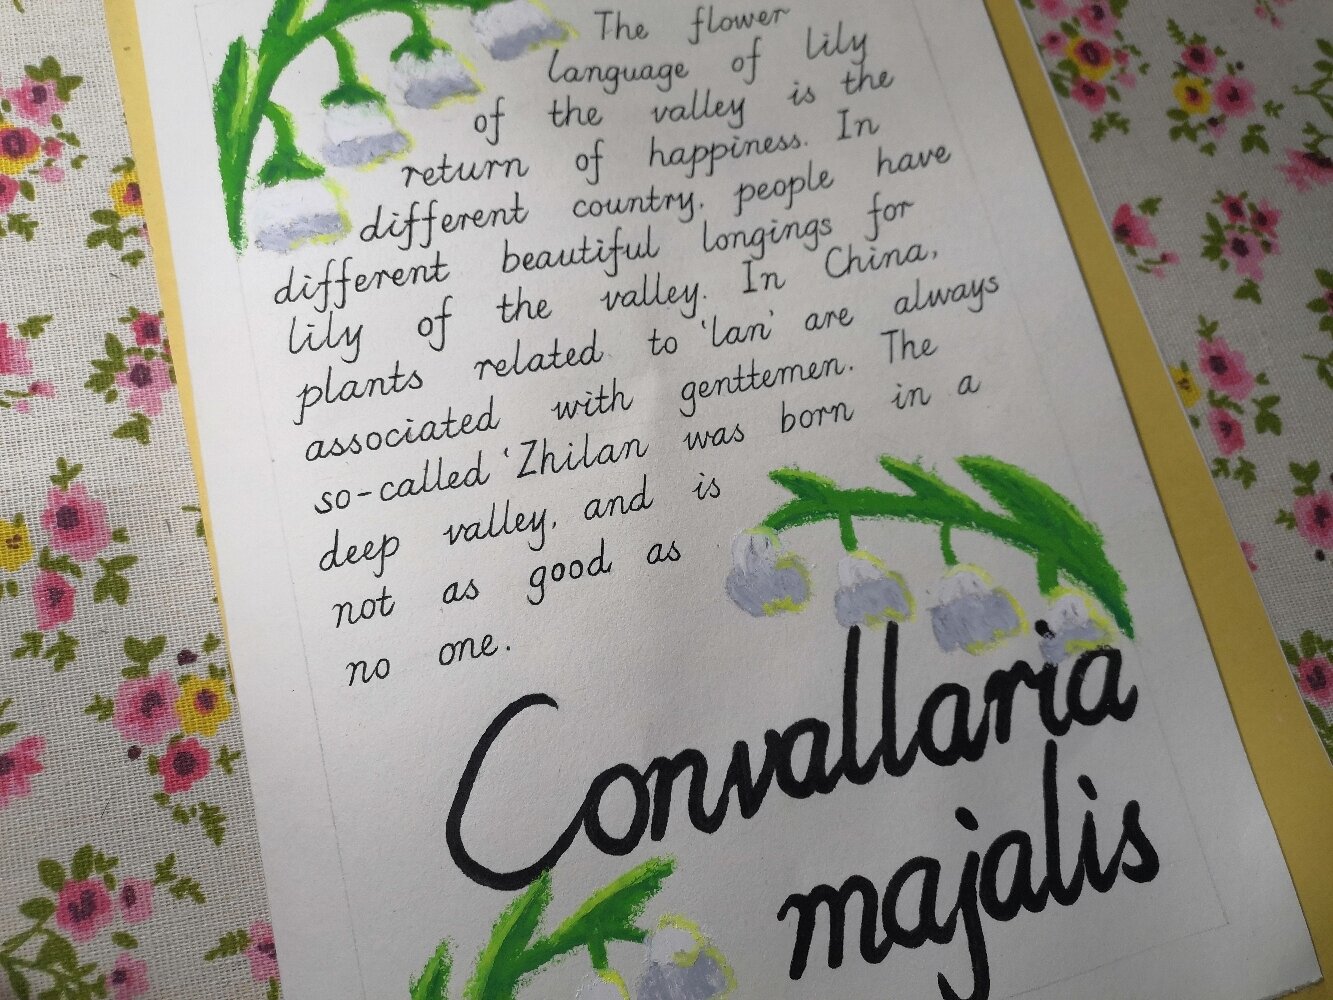 The flower
language of lily
of the valley is the
return of happiness. In
different country. people have
different beautiful longings for
lily of the valley. In China,
plants related to 'lan' are always
associated with genttemen. The
so-called 'Zhilan was born in a
deep valley. and is
not as good as
no one.
Convallaria
majalis